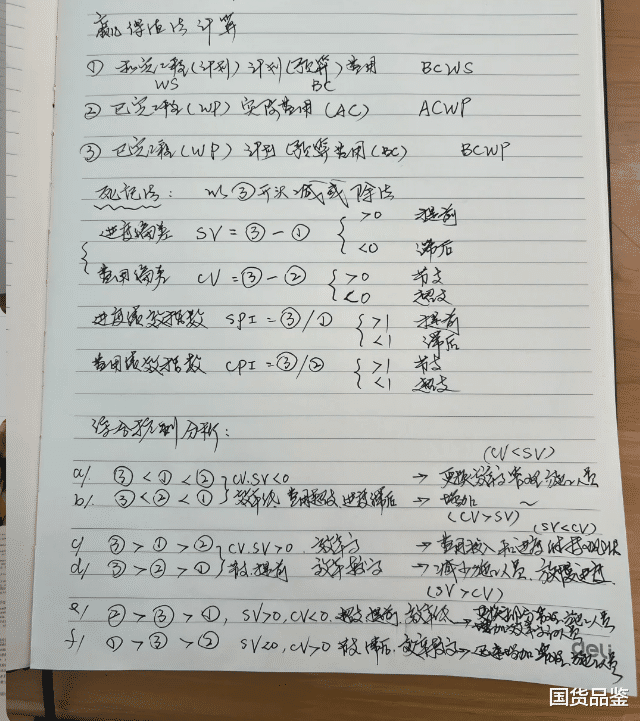 赢得值法计算
① 拟完工程(计划) 计划(预算)费用 BCWS
WS BC
② 已完工程(WP) 实际费用(AC) ACWP
③ 已完工程(WP) 计划(预算费用(BC) BCWP
死记法: 以③开头减或除法
进度偏差 SV = ③ - ① { >0 提前
<0 滞后
费用偏差 CV = ③ - ② { >0 节支
<0 超支
进度绩效指数 SPI = ③/① { >1 提前
<1 滞后
费用绩效指数 CPI = ③/② { >1 节支
<1 超支
综合控制分析:
(CV<SV)
a/. ③ < ① < ② } CV.SV<0 → 更换效率高 人员
b/. ③ < ② < ① } 效率低 费用超支 进度滞后 → 增加 ~
(CV>SV)
(SV<CV)
c/ ③ > ① > ② } CV.SV>0. 效率高 →
d/. ③ > ② > ① } 节支.提前 效率较高 → 减少 人员.放慢进度
(SV>CV)
e/ ② > ③ > ①, SV>0, CV<0. 超支提前, 效率低 → 人员
f/. ① > ③ > ② SV<0, CV>0 节支 滞后. 效率较高 → 迅速增加 人员
deli
国货品鉴